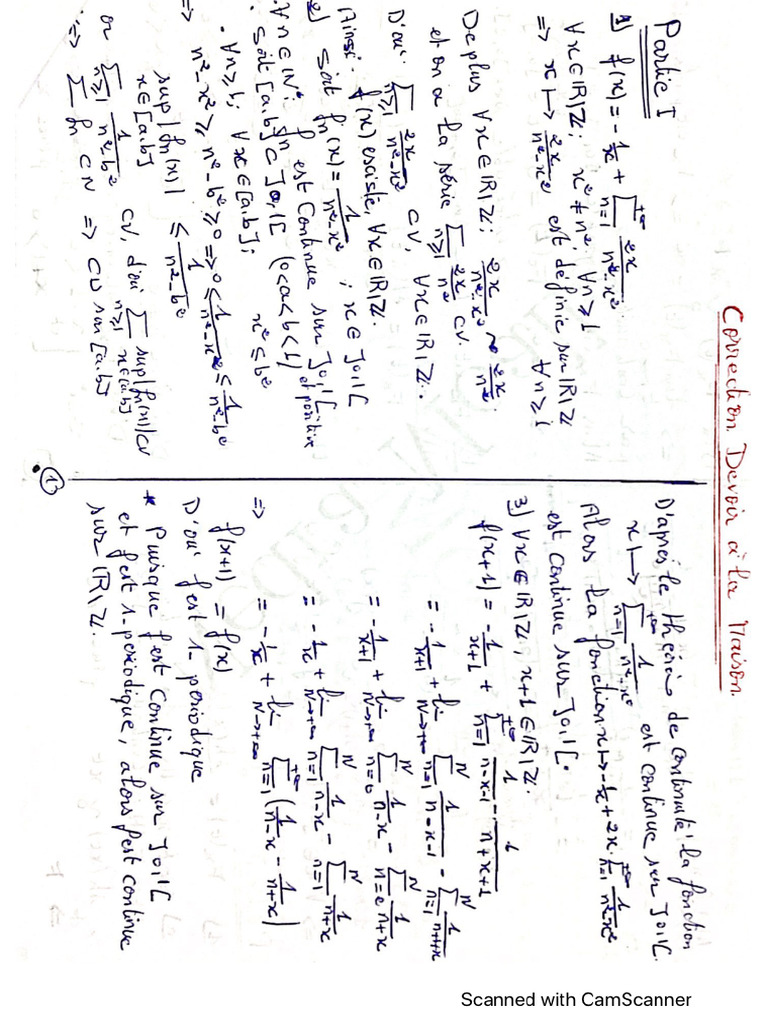 Correction Devoir à la Maison
Partie I
1) f(x) = -1/x + ∑_{n=1}^{+∞} 2x/(n²-x²)
∀x∈ℝ\ℤ; x² ≠ n², ∀n≥1
=> x ↦ 2x/(n²-x²) est définie sur ℝ\ℤ ∀n≥1
De plus ∀x∈ℝ\ℤ; 2x/(n²-x²) ~ 2x/n².
et on a la série ∑_{n≥1} 2x/n² cv.
D'où ∑_{n≥1} 2x/(n²-x²) CV, ∀x∈ℝ\ℤ.
Ainsi f(x) existe, ∀x∈ℝ\ℤ.
2) soit fn(x) = 1/(n²-x²); x∈]0,1[
∀n∈ℕ*: fn est continue sur ]0,1[ et positive
• soit [a,b]⊂]0,1[ (0<a<b<1)
• ∀n≥1; ∀x∈[a,b]; x² ≤ b²
=> n²-x² ≥ n²-b² ≥ 0 => 0 ≤ 1/(n²-x²) ≤ 1/(n²-b²)
sup_{x∈[a,b]} |fn(x)| ≤ 1/(n²-b²)
or ∑_{n≥1} 1/(n²-b²) CV, d'où ∑_{n≥1} sup_{x∈[a,b]} |fn(x)| CV
=> ∑ fn CN => CU sur [a,b]
D'après le théorème de continuité la fonction
x ↦ ∑_{n=1}^{+∞} 1/(n²-x²) est continue sur ]0,1[.
Alors la fonction x ↦ -1/x + 2x.∑_{n=1}^{+∞} 1/(n²-x²)
est continue sur ]0,1[.
3) ∀x∈ℝ\ℤ, x+1∈ℝ\ℤ.
f(x+1) = -1/(x+1) + ∑_{n=1}^{+∞} 1/(n-x-1) - 1/(n+x+1)
= -1/(x+1) + lim_{N→+∞} ∑_{n=1}^{N} 1/(n-x-1) - ∑_{n=1}^{N} 1/(n+1+x)
= -1/(x+1) + lim_{N→+∞} ∑_{n=0}^{N} 1/(n-x) - ∑_{n=2}^{N} 1/(n+x)
= -1/x + lim_{N→+∞} ∑_{n=1}^{N} 1/(n-x) - ∑_{n=1}^{N} 1/(n+x)
= -1/x + lim_{N→+∞} ∑_{n=1}^{+∞} (1/(n-x) - 1/(n+x))
=> f(x+1) = f(x)
D'où f est 1-periodique
* Puisque f est continue sur ]0,1[
et f est 1-periodique, alors f est continue
sur ℝ\ℤ.
1
Scanned with CamScanner